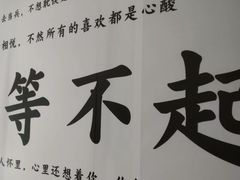 去当兵，不想就没
相悦，不然所有的喜欢都是心酸
等不起
人怀里，心里还想着你